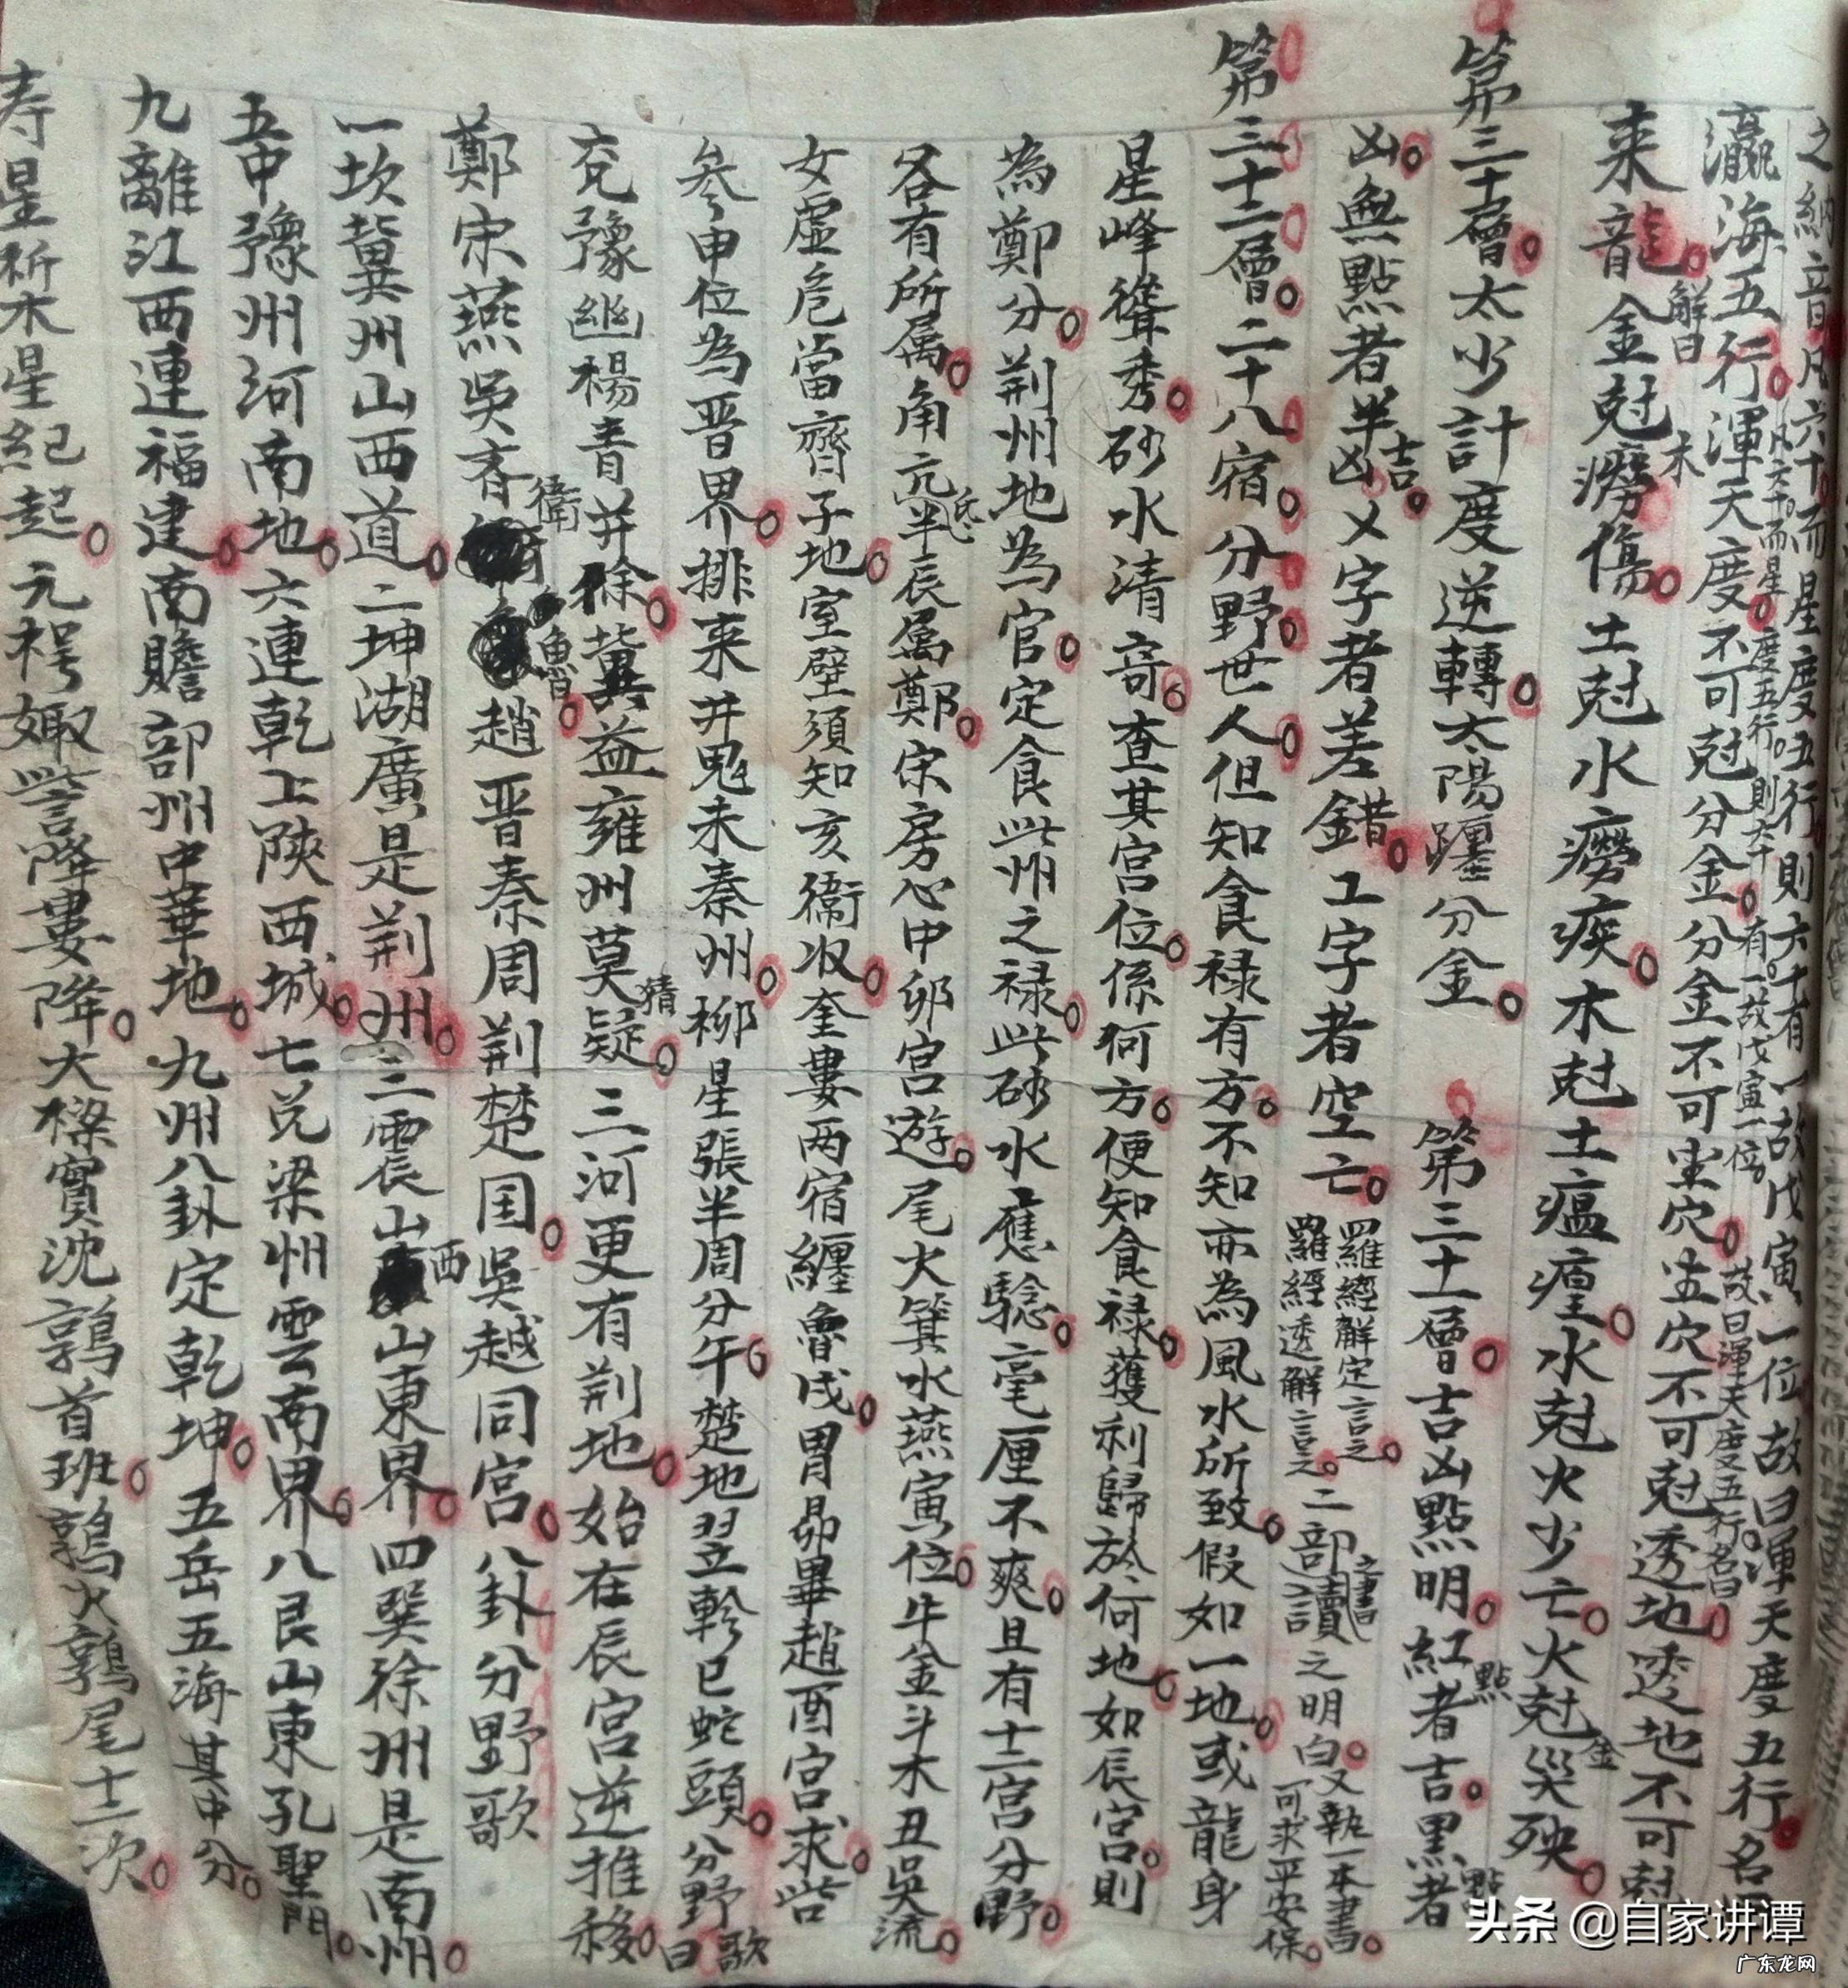 之納音凡六十而星度五行則六十有一故戊寅一位故曰渾天度五行名
凡六十而星度五行則六十有一故戊寅一位故曰渾天度五行名曰
瀛海五行渾天度不可尅分金分金不可坐穴坐穴不可尅透地透地不可尅
來龍解曰金尅木癆傷土尅水癆疾木尅土瘟瘴水尅火少亡火尅金災殃
第三十層太少計度逆轉太陽躔分金 第三十一層吉凶點明紅點者吉黑點者
凶無點者半吉凶乂字者差錯工字者空亡羅經解定言之羅經透解言之二部之書讀之明白又執一本書可求平安保
第三十二層二十八宿分野世人但知食禄有方不知亦為風水所致假如一地或龍身
星峰聳秀砂水清奇查其宮位係何方便知食禄獲利歸於何地如辰宮則
為鄭分荆州地為官定食此州之禄此砂水應驗毫厘不爽且有十二宮分野
各有所属角亢氐半辰属鄭宋房心中卯宮遊尾火箕水燕寅位牛金斗木丑吳流
女虛危當齊子地室壁須知亥衞收奎婁两宿纏魯戌胃昴畢趙酉宮求觜
參申位為晋界排来井鬼未秦州柳星張半周分午楚地翌軫巳蛇頭分野歌曰
兗豫幽楊青并徐冀益雍州莫猜疑三河更有荆地始在辰宮逆推移
鄭宋燕吳齊衛魯趙晋秦周荆楚国吳越同宮八卦分野歌
一坎冀州山西道二坤湖廣是荆州三震山西山東界四巽徐州是南州
五中豫州河南地六連乾上陝西城七兑梁州雲南界八艮山東孔聖門
九離江西連福建南贍部州中華地九州八卦定乾坤五岳五海其中分
寿星析木星紀起元枵娵訾降婁降大樑實沈鶉首班鶉火鶉尾十二次
头条 @自家讲谭
广东龙网